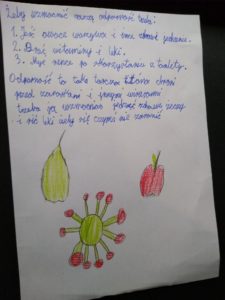 Żeby wzmocnić naszą odporność trzeba:
1. Jeść owoce warzywa i inne zdrowe jedzenie.
2. Brać witaminy i leki.
3. Myć ręce po skorzystaniu z toalety.
Odporność to taka tarcza która chroni
przed zarazkami i innymi wirusami
trzeba ją wzmacniać jedząc zdrowe rzeczy
i pić leki żeby się czymś nie zarazić